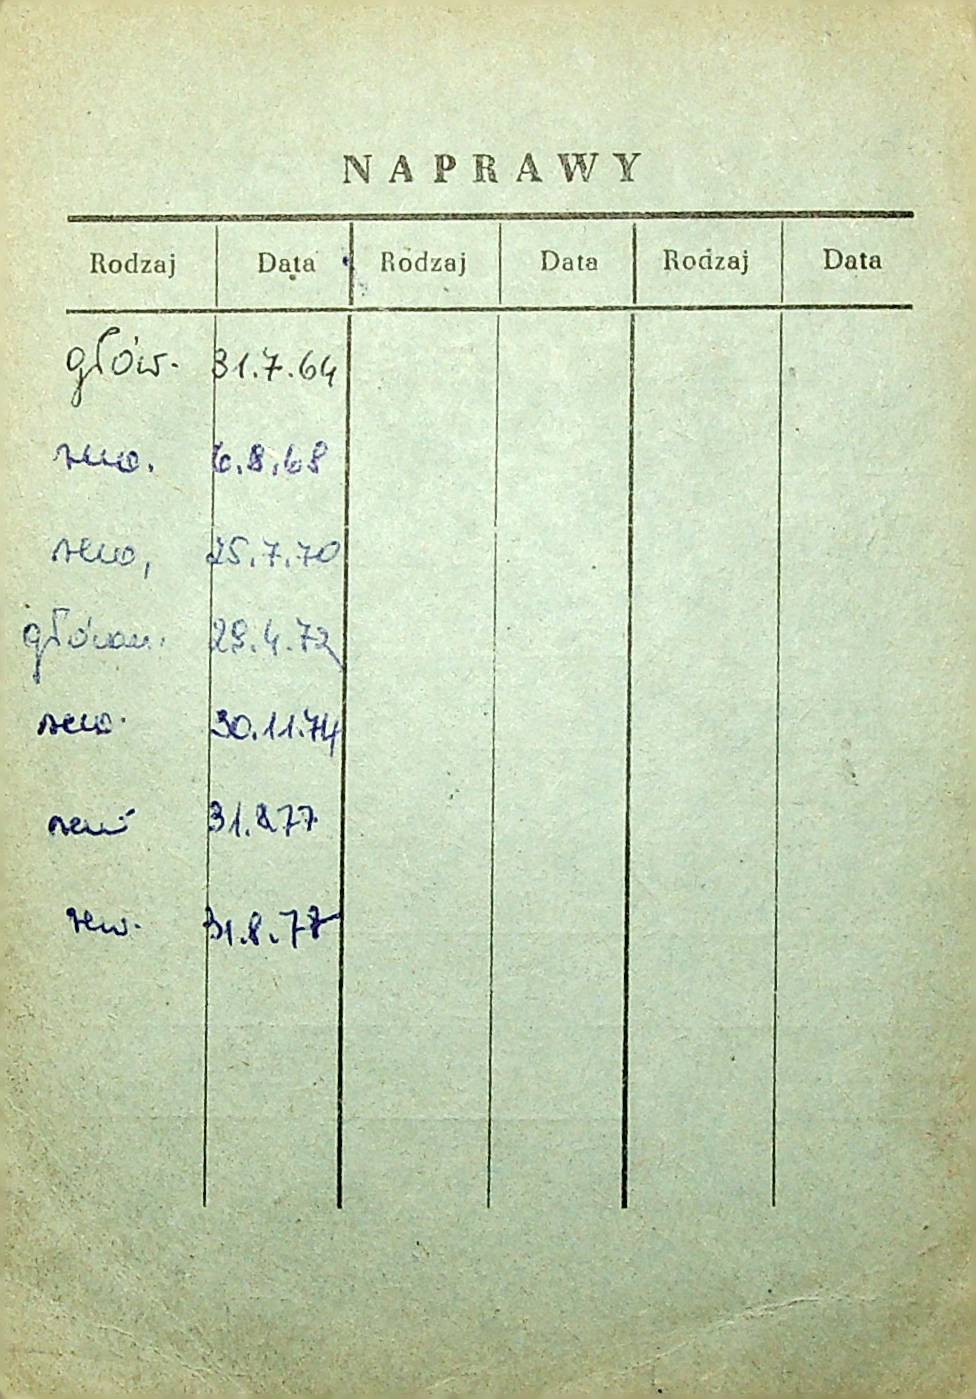 NAPRAWY
Rodzaj Data Rodzaj Data Rodzaj Data
głów. 31.7.64
rew. 6.8.68
rew, 25.7.70
główn. 29.4.72
rew. 30.11.74
rew 31.8.77
rew. 31.8.78